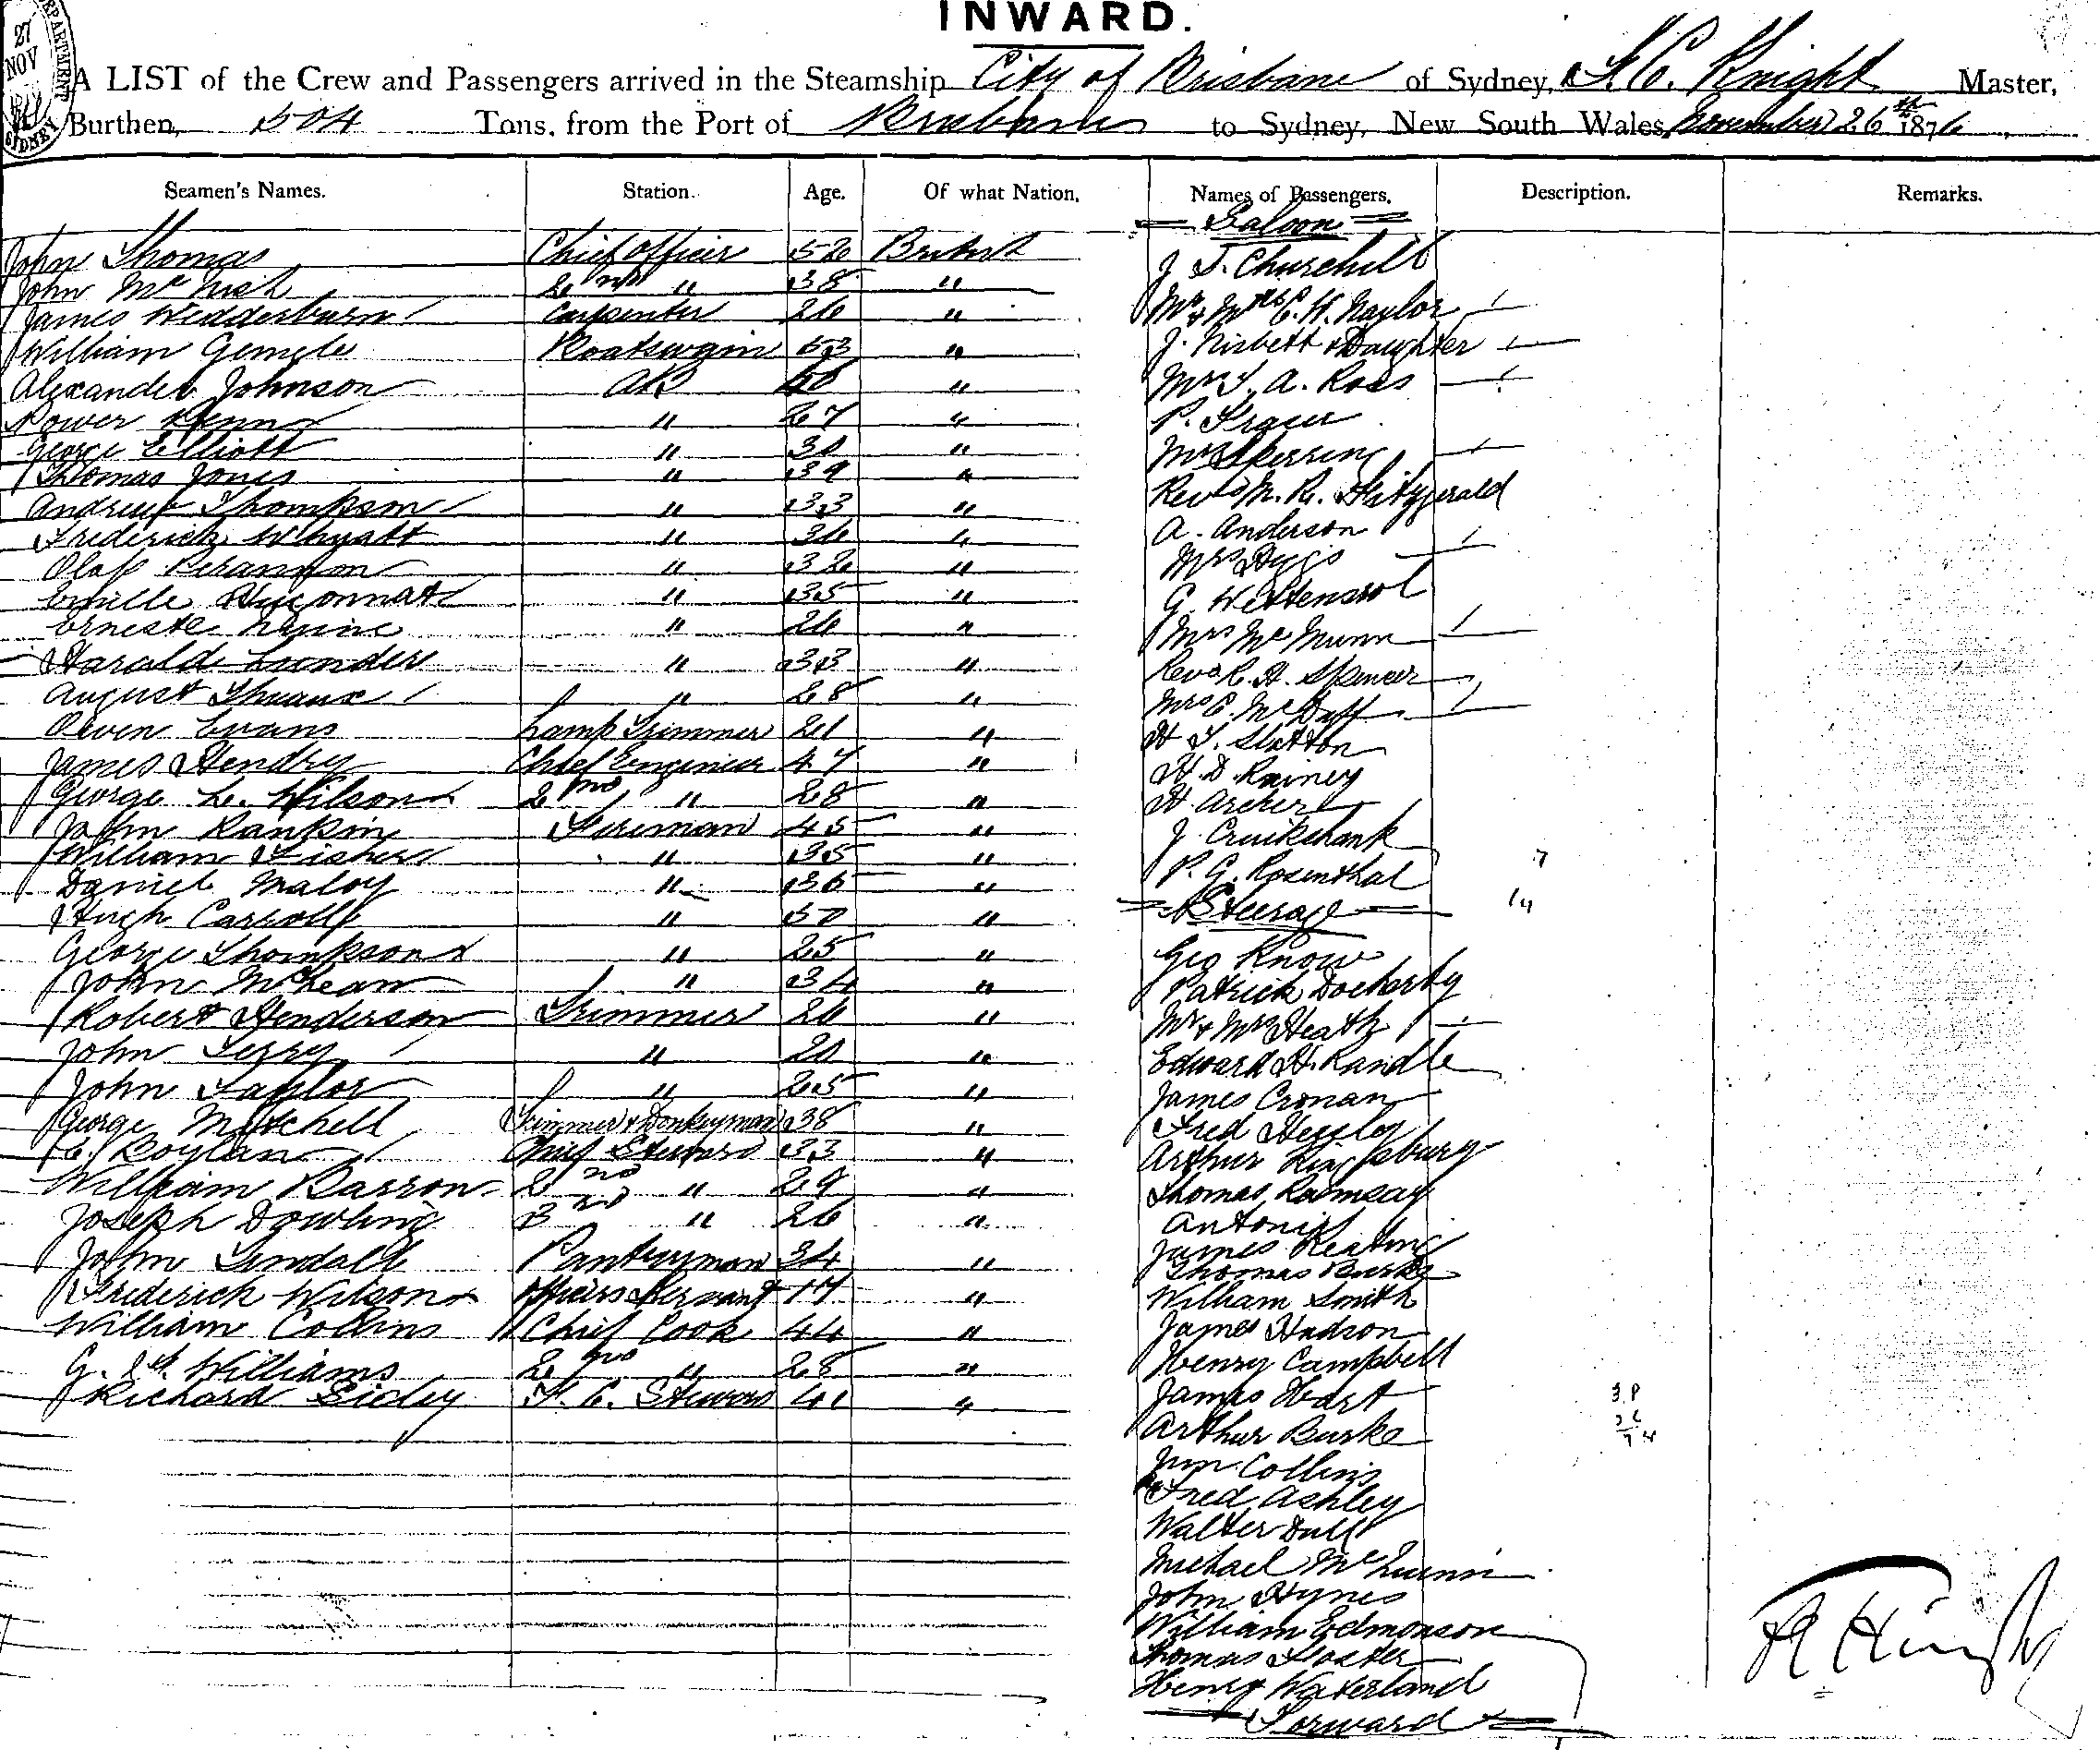 INWARD.
27
NOV
SYDNEY
A LIST of the Crew and Passengers arrived in the Steamship City of Brisbane of Sydney, Knight Master,
Burthen, 504 Tons, from the Port of Brisbane to Sydney, New South Wales, November 26th 1876
Seamen's Names. Station. Age. Of what Nation. Names of Passengers. Description. Remarks.
Saloon
John Thomas Chief Officer 52 British J. J. Churchill
John McNish 2nd " 38 " Mr & Mrs C. H. Naylor
James Wedderburn Carpenter 26 " J. Nisbett & Daughter
William Boatswain 53 " Mrs J. A. Ross
Alexander Johnson AB 40 " P. Fraser
Power " 27 " Mrs Sperring
George Elliott " 30 " Revd M. R. Fitzgerald
Thomas Jones " 39 " A. Anderson
Andrew Thompson " 33 " Mrs
Frederick Whyatt " 36 " G.
Olaf " 32 " Mrs McMunn
Emille " 35 " Revd R. H. Spencer
Erneste " 26 " Mrs E. McDuff
Harald Lunder " 33 " H. T. Slatton
August " 28 " H. D. Rainey
Owen Evans Lamp Trimmer 21 " H. Archer
James Hendry Chief Engineer 47 " J. Cruikshank
George L. Wilson 2nd " 28 " P. G. Rosenthal
John Rankin Fireman 45 "
William Fisher " 35 " 7
Daniel Maloy " 36 " Steerage 14
Hugh Carroll " 50 "
George Thompson " 25 " Geo Know
John McLean " 34 " Patrick Docherty
Robert Henderson Trimmer 26 " Mr & Mrs Heath
John Terry " 20 " Edward H. Randle
John Taylor " 25 " James Cronan
George Mitchell Trimmer & Donkeyman 38 " Fred
Boylan Chief Steward 33 " Arthur Kingsbury
William Barron 2nd " 29 " Thomas Ramsay
Joseph Dowling 3rd " 26 " Antonio
John Tindall Pantryman 34 " James Keating
Frederick Wilson Officers Servant 17 " Thomas Burke
William Collins Chief Cook 44 " William Smith
G. Williams 2nd " 28 " James Hudson
Richard Sidey F. C. Steward 41 " Henry Campbell
James Hart
Arthur Burke
Jim Collins
Fred Ashley
Walter Dull
Michael
John Hynes
William Edmonson
Thomas Foster
Henry Waterland
Forward